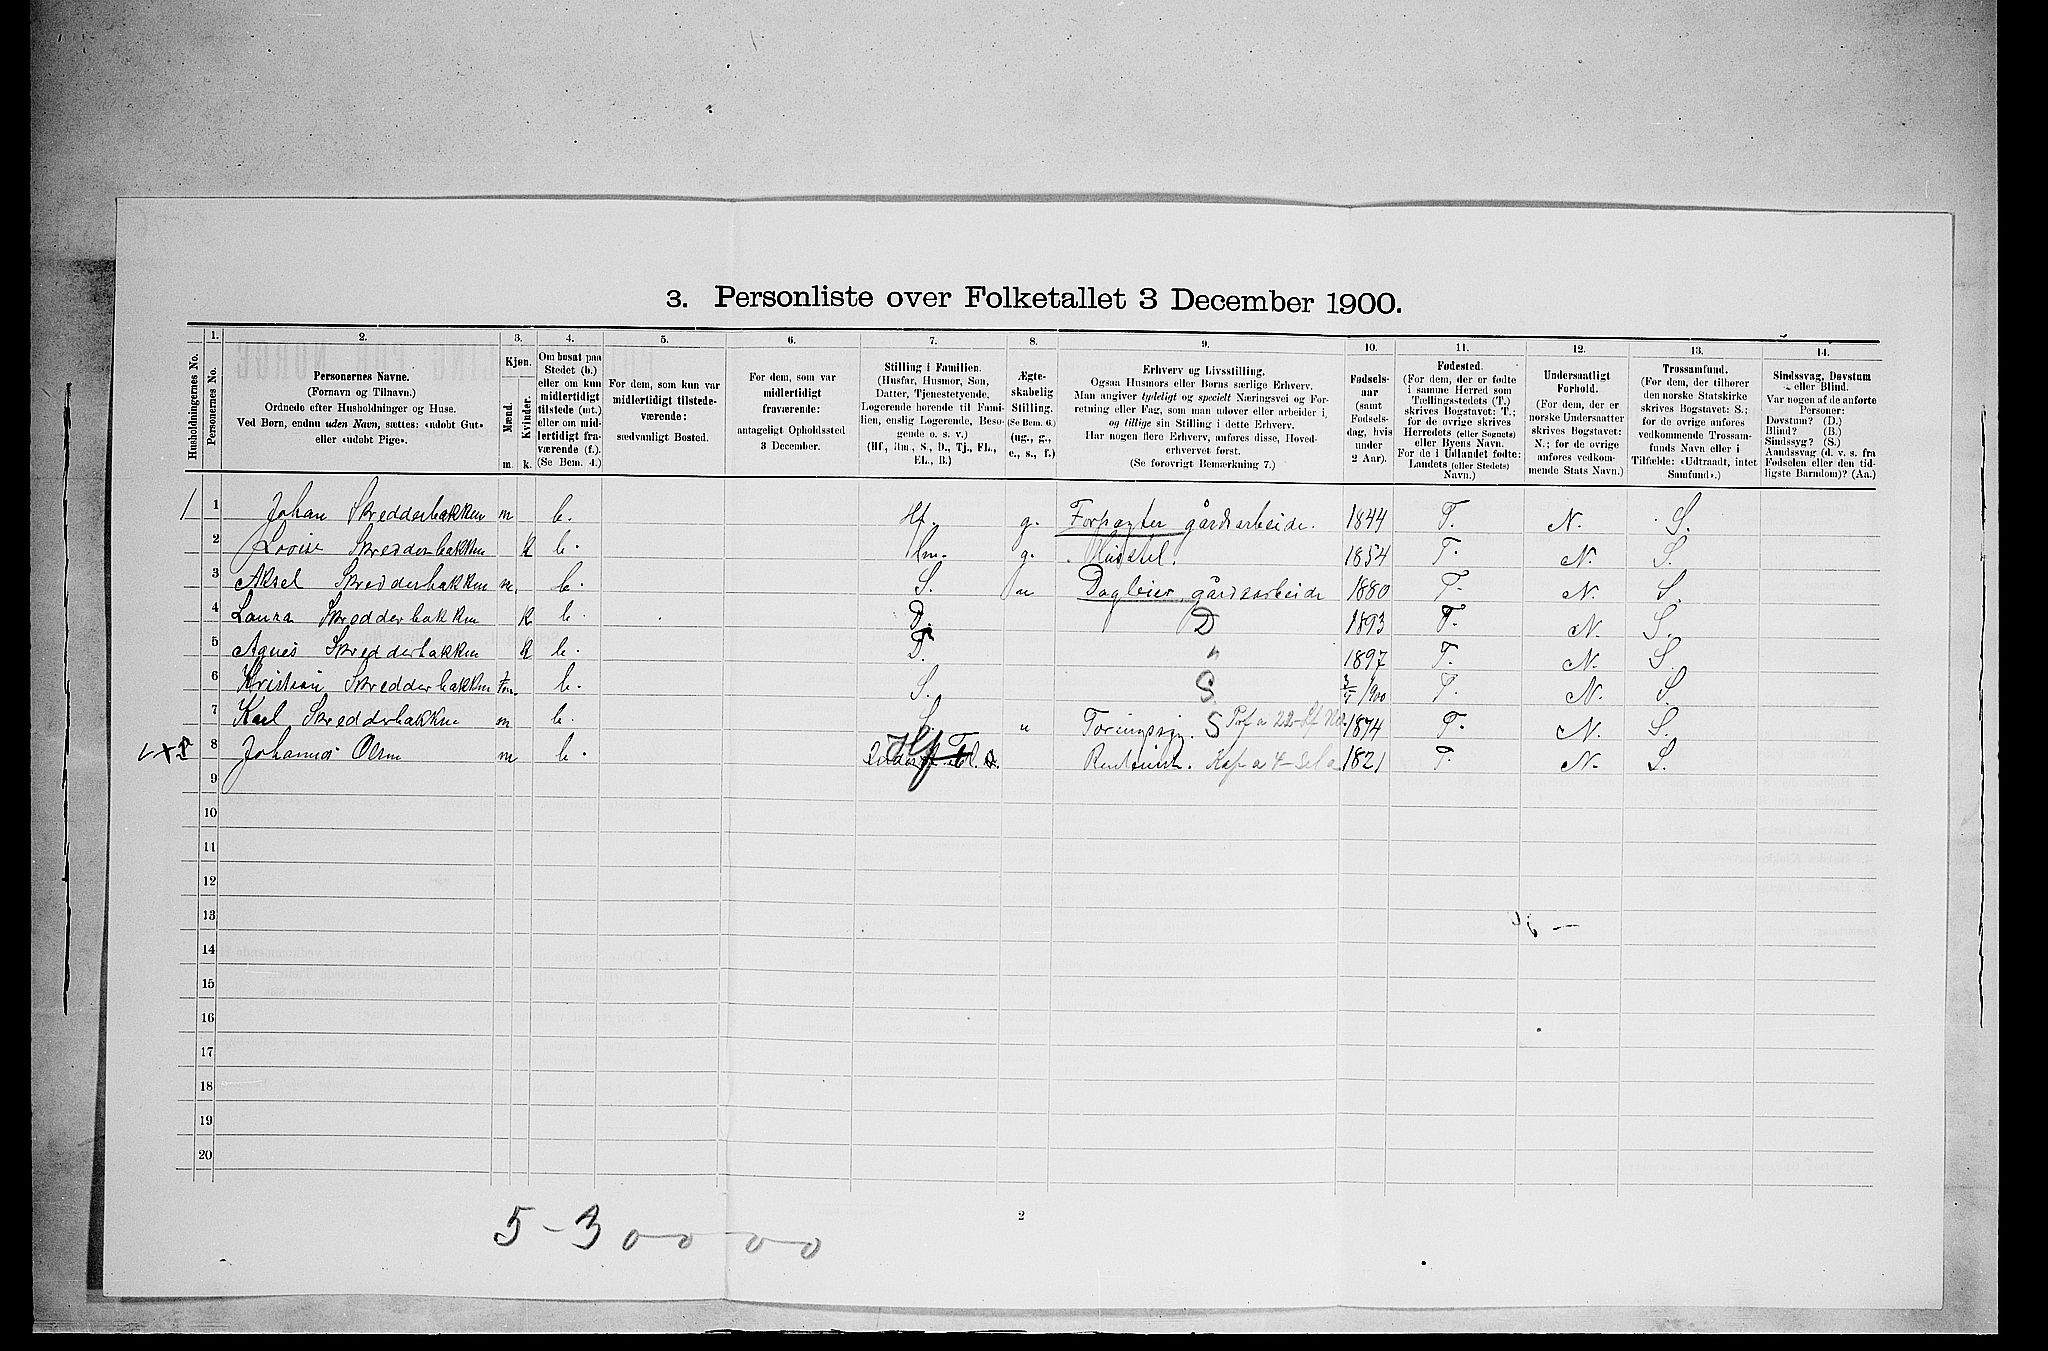 3. Personliste over Folketallet 3 December 1900.
Husholdningernes No.
1. Personernes No.
2. Personernes Navne.
(Fornavn og Tilnavn.)
Ordnede efter Husholdninger og Huse.
Ved Børn, endnu uden Navn, sættes: «udøbt Gut»
eller «udøbt Pige».
3. Kjøn.
Mænd. m.
Kvinder. k.
4. Om bosat paa
Stedet (b.)
eller om kun
midlertidigt
tilstede (mt.)
eller om mid-
lertidigt fra-
værende (f.).
(Se Bem. 4.)
5. For dem, som kun var
midlertidigt tilstede-
værende:
sædvanligt Bosted.
6. For dem, som var
midlertidigt
fraværende:
antageligt Opholdssted
3 December.
7. Stilling i Familien.
(Husfar, Husmor, Søn,
Datter, Tjenestetyende,
Logerende hørende til Fami-
lien, enslig Logerende, Besø-
gende o. s. v.)
(Hf., Hm., S., D., Tj., FL.,
EL., B.)
8. Ægte-
skabelig
Stilling.
(Se Bem. 6.)
(ug., g.,
e., s., f.)
9. Erhverv og Livsstilling.
Ogsaa Husmors eller Børns særlige Erhverv.
Man angiver tydeligt og specielt Næringsvei og For-
retning eller Fag, som man udøver eller arbeider i,
og tillige sin Stilling i dette Erhverv.
Har nogen flere Erhverv, anføres disse, Hoved-
erhvervet først.
(Se forøvrigt Bemærkning 7.)
10. Fødsels-
aar
(samt
Fødsels-
dag, hvis
under
2 Aar).
11. Fødested.
(For dem, der er fødte
i samme Herred som
Tællingsstedets (T.)
skrives Bogstavet: T.;
for de øvrige skrives
Herredets (eller Sognets)
eller Byens Navn.
For de i Udlandet fødte:
Landets (eller Stedets)
Navn.)
12. Undersaatligt
Forhold.
(For dem, der er
norske Undersaatter
skrives Bogstavet:
N.; for de øvrige
anføres vedkom-
mende Stats Navn.)
13. Trossamfund.
(For dem, der tilhører
den norske Statskirke
skrives Bogstavet: S.;
for de øvrige anføres
vedkommende Trossam-
funds Navn eller i
Tilfælde: «Udtraadt, intet
Samfund».)
14. Sindssvag, Døvstum
eller Blind.
Var nogen af de anførte
Personer:
Døvstum? (D.)
Blind? (B.)
Sindssyg? (S.)
Aandssvag (d. v. s. fra
Fødselen eller den tid-
ligste Barndom)? (Aa.)
1 1 Johan Skredderbakken m b. Hf. g. Forpagter gårdsarbeide. 1844 T. N. S.
2 Lovise Skredderbakken k b. hm. g. Husstel. 1854 T. N. S.
3 Aksel Skredderbakken m. b. S. u Dagleier, gårdsarbeide 1880 T. N. S.
4 Laura Skredderbakken k b. D. D 1893 T. N. S.
5 Agnes Skredderbakken k b. D. " 1897 T. N. S.
6 Kristian Skredderbakken m. b. S. S 3/5/900 T. N. S.
7 Karl Skredderbakken m b. S. u S 1874 T. N. S.
8 Johannes Olsen m b. 1821 T. N. S.
9
10
11
12
13
14
15
16
17
18
19
20
5-3 0 0 0 0
2